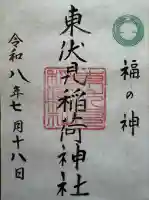 福の神
東伏見稲荷神社
令和八年七月十八日